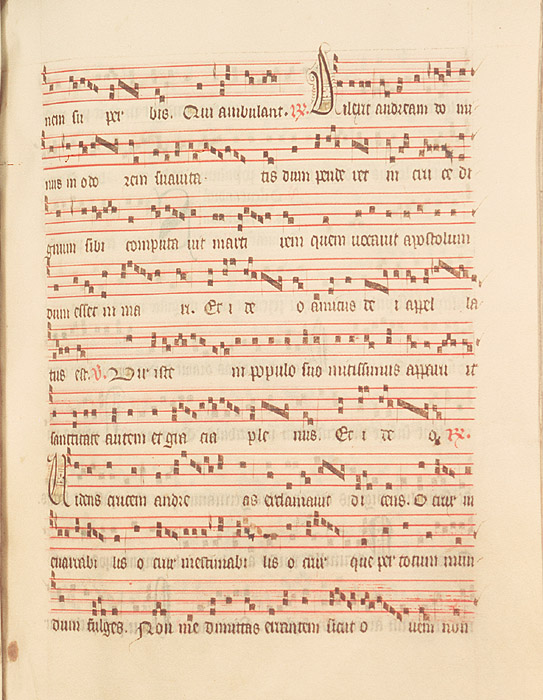 nem su per bis. Qui ambulant. R. Dilexit andream do mi
nus in odo rem suavita tis dum pende ret in cru ce di
gnum sibi computa vit marti rem quem vocavit apostolum
dum esset in ma ri. Et i de o amicus de i appel la
tus est. V. Vir iste in populo suo mitissimus apparu it
sanctitate autem et gra cia ple nus. Et i de o. R.
Videns crucem andre as exclamavit di cens. O crux in
enarrabi lis o crux inestimabi lis o crux que per totum mun
dum fulges. Non me dimittas errantem sicut o vem non